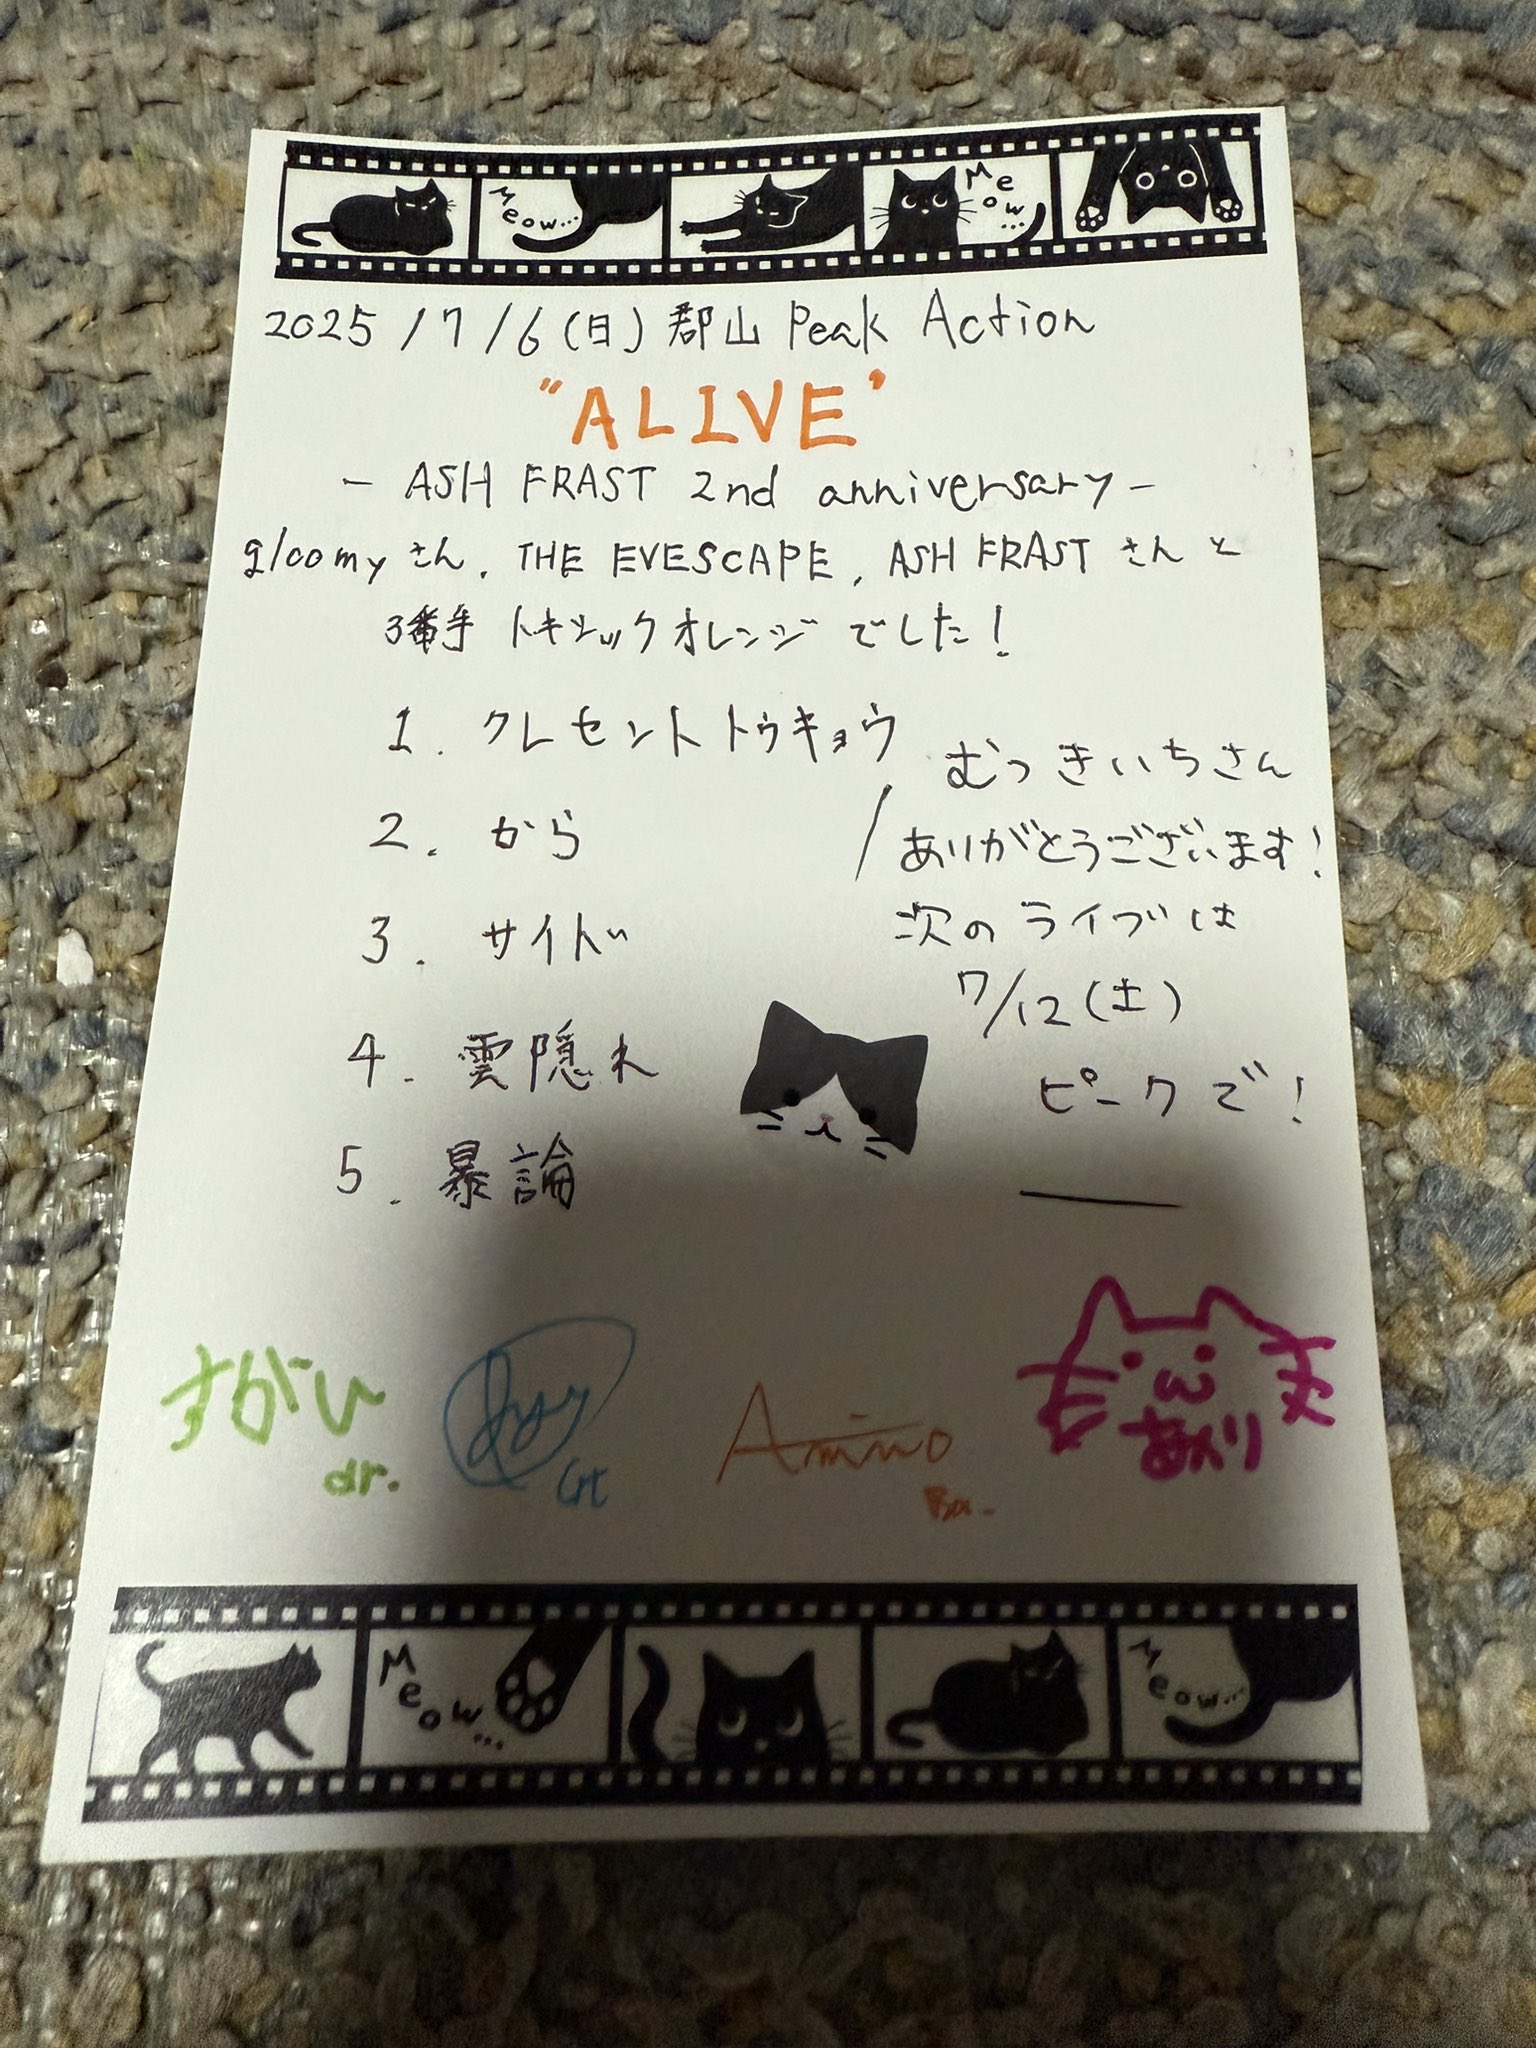 Meow...
Meow...
2025/7/6(日)郡山 Peak Action
"ALIVE"
- ASH FRAST 2nd anniversary -
gloomyさん、THE EVESCAPE、ASH FRASTさんと
3番手 トキシックオレンジでした!
1. クレセントトウキョウ
2. から
3. サイド
4. 雲隠れ
5. 暴論
むつきいちさん
ありがとうございます!
次のライブは
7/12(土)
ピークで!
すがい
dr.
Gt
Amino
Ba.
あんり
Meow...
Meow...